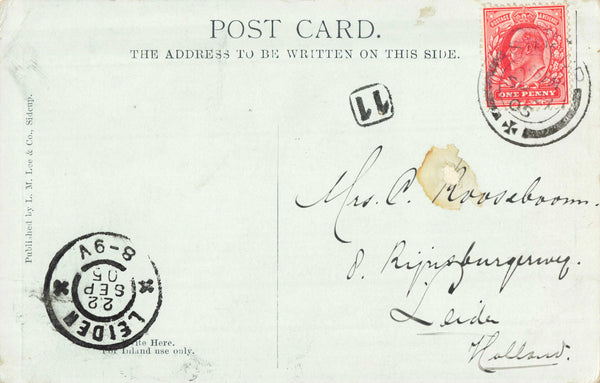 POST CARD.
THE ADDRESS TO BE WRITTEN ON THIS SIDE.
POSTAGE REVENUE
ONE PENNY
05
11
Published by L. M. Lee & Co., Sidcup.
Mrs. C. Rooseboom.
8. Rijnsburgerweg.
Leiden
Holland.
LEIDEN
22
SEP
05
8-9V
Write Here.
For Inland use only.